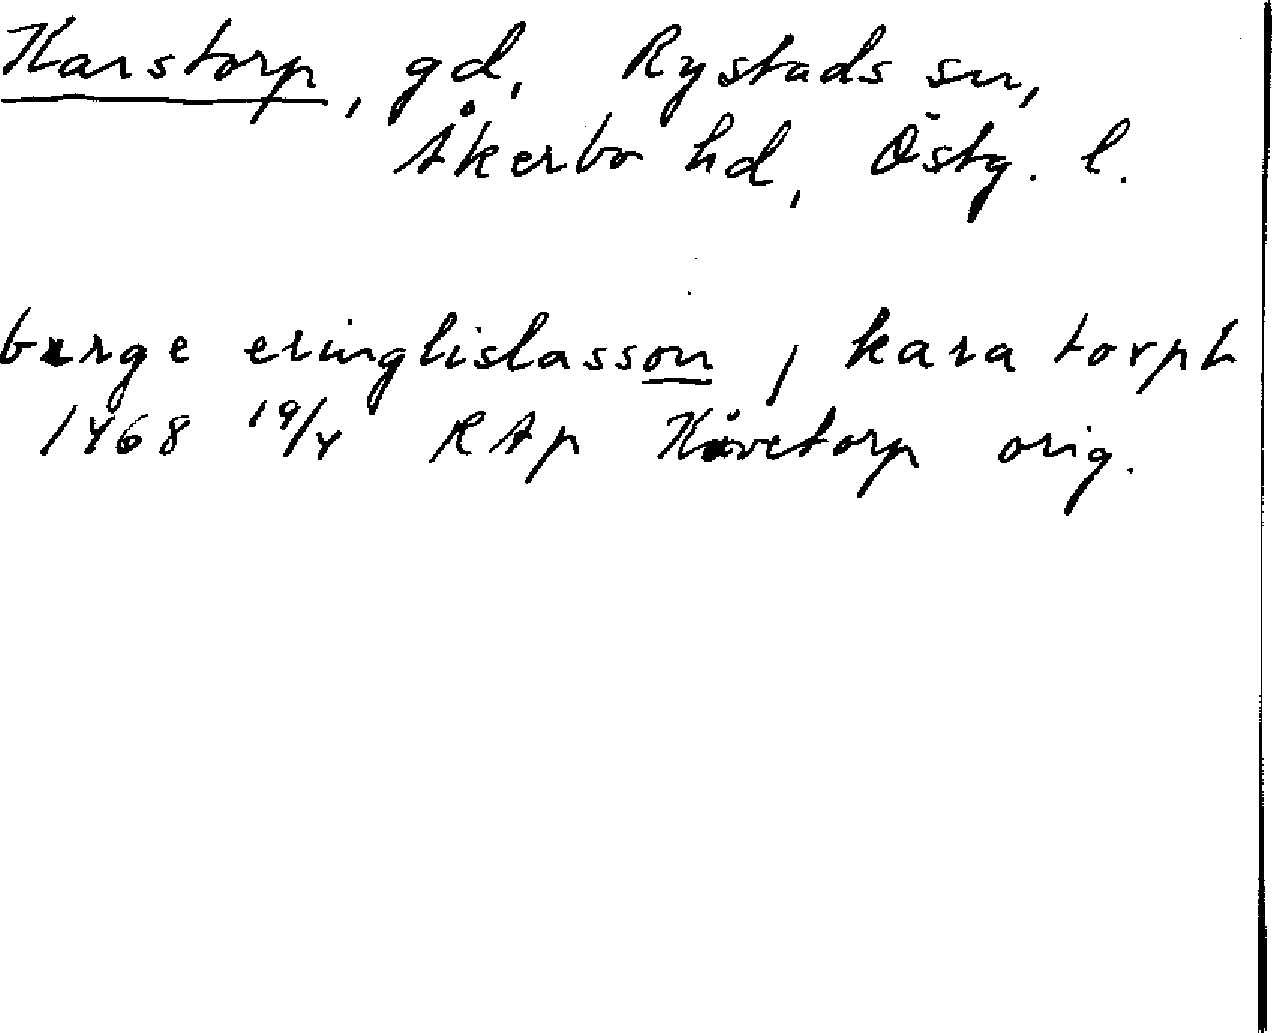 Karstorp, gd, Rystads sn,
Åkerbo hd, Östg. l.
børge eringlislasson j kara torpt
1468 19/4 RAp Kåvetorp orig.